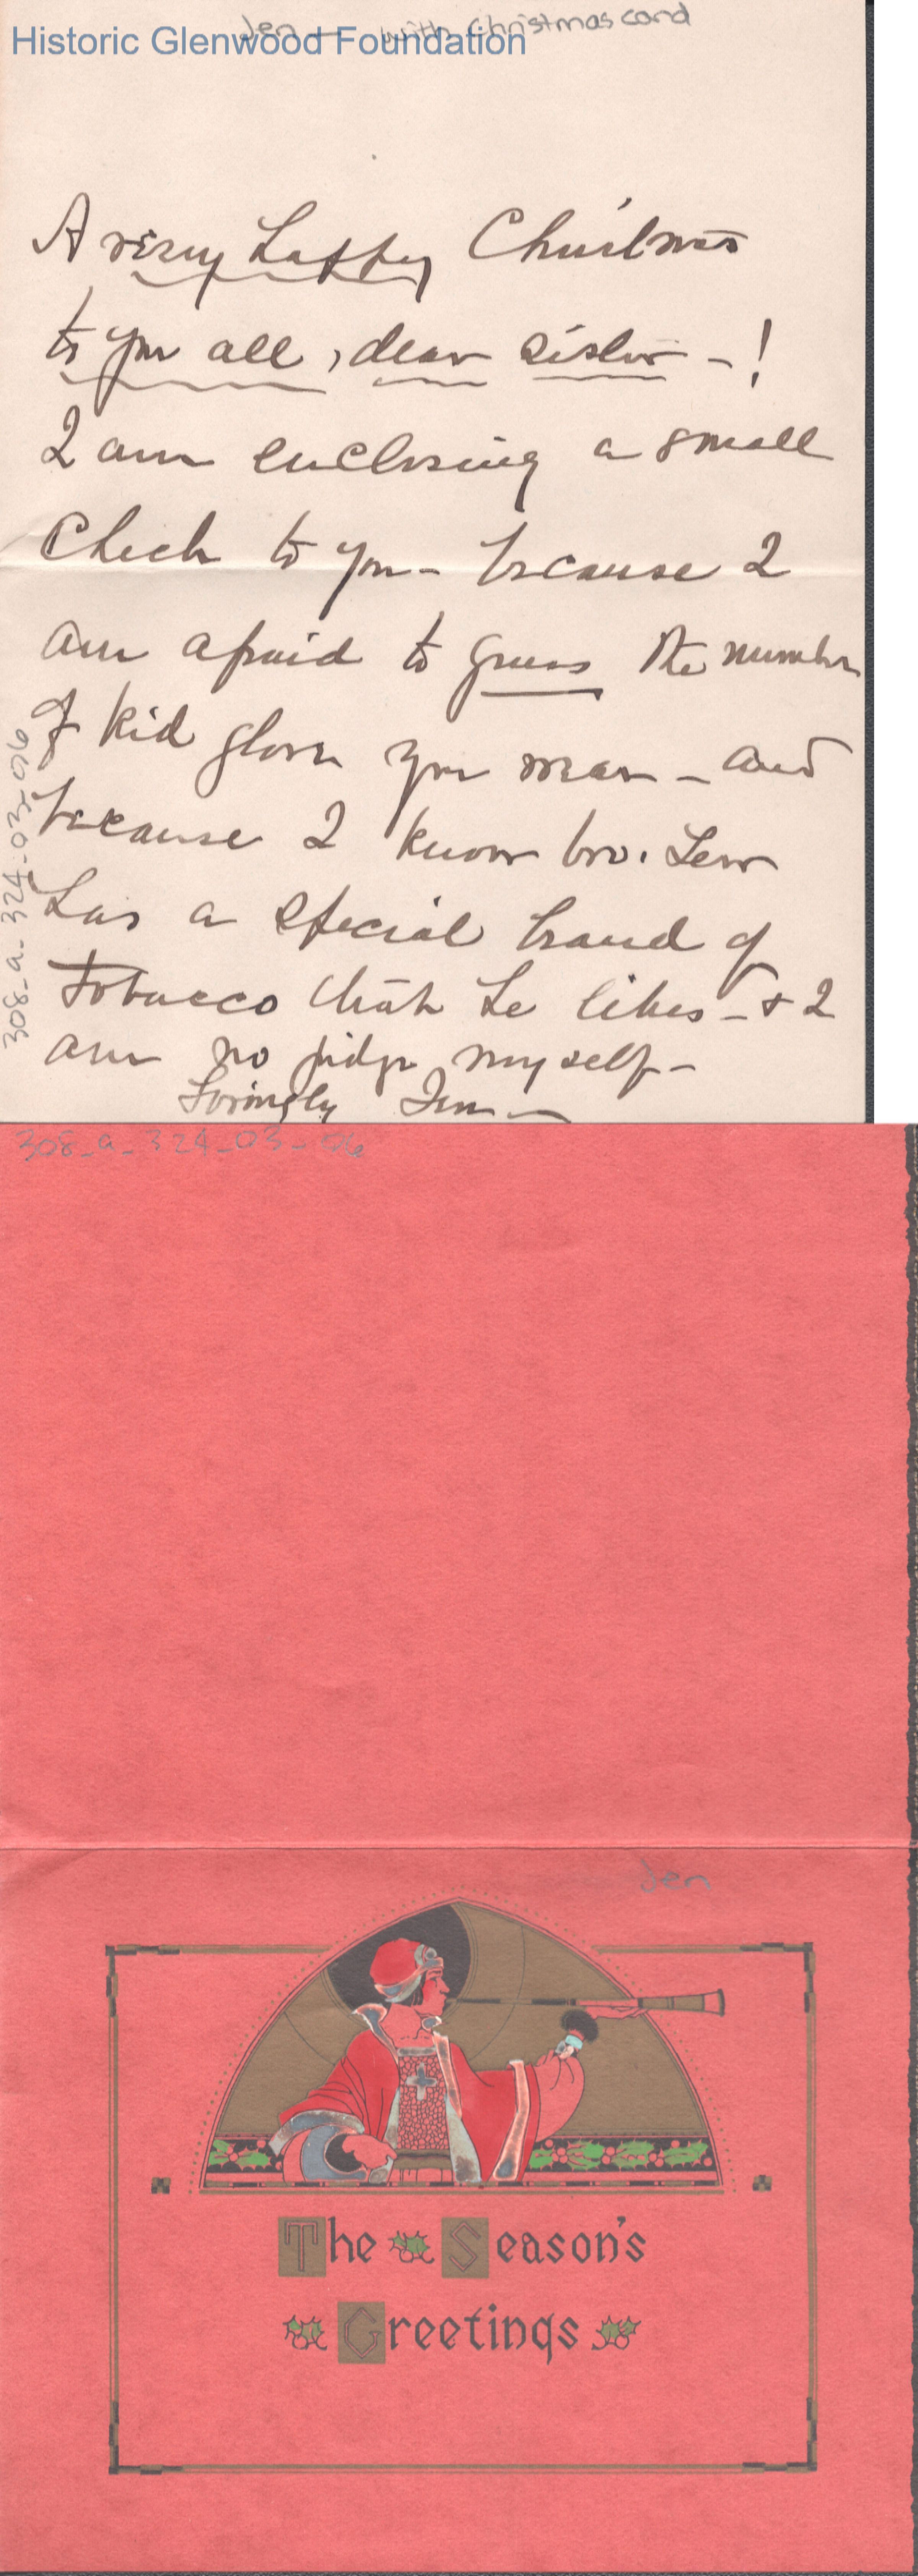 Jen — with Christmas card
Historic Glenwood Foundation
A very happy Christmas
to you all, dear sister - !
I am enclosing a small
check to you - because I
am afraid to guess the number
of kid gloves you wear - and
because I know bro. Lew
has a special brand of
tobacco that he likes - & I
am no judge myself -
Lovingly Jen -
308_a_324_03_06
308_a_324_03_06
Jen
The Season's
Greetings